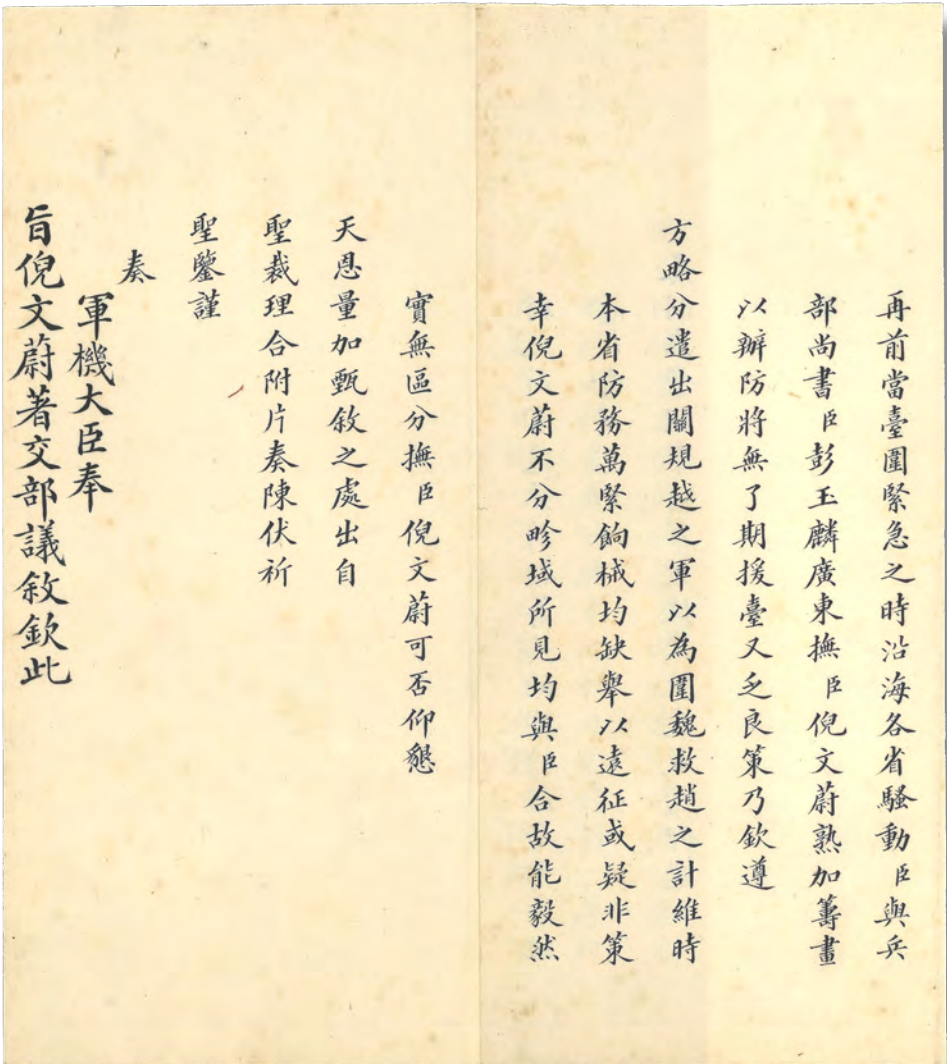 再前當臺圍緊急之時沿海各省騷動臣與兵
部尚書臣彭玉麟廣東撫臣倪文蔚熟加籌畫
以辦防將無了期援臺又乏良策乃欽遵
方略分遣出關規越之軍以為圍魏救趙之計維時
本省防務萬緊餉械均缺舉以遠征或疑非策
幸倪文蔚不分畛域所見均與臣合故能毅然
實無區分撫臣倪文蔚可否仰懇
天恩量加甄敘之處出自
聖裁理合附片奏陳伏祈
聖鑒謹
奏
軍機大臣奉
旨倪文蔚著交部議敘欽此